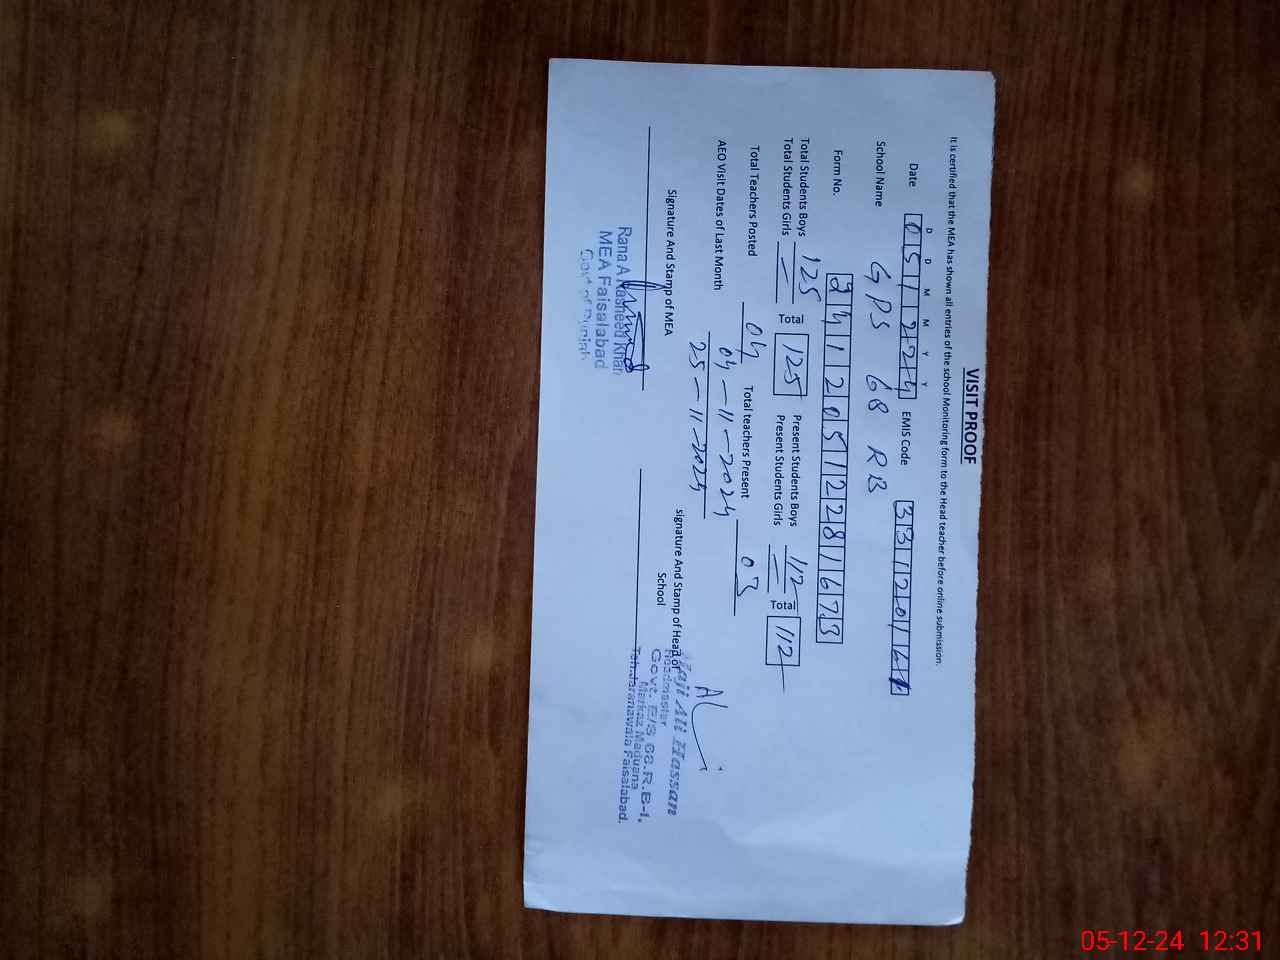 VISIT PROOF
It is certified that the MEA has shown all entries of the school Monitoring form to the Head teacher before online submission.
D D M M Y Y
Date 051224 EMIS Code 3312016
School Name GPS 68 RB
Form No. 24120512281673
Total Students Boys 125 Total 125 Present Students Boys 112 Total 112
Total Students Girls — Present Students Girls —
Total Teachers Posted 04 Total teachers Present 03
AEO Visit Dates of Last Month 04-11-2024
25-11-2024
Signature And Stamp of MEA signature And Stamp of Head of School
Rana A Rasheed Khan
MEA Faisalabad
Govt of Punjab
Haji Ali Hassan
Headmaster
Govt. E/S 68.R.B-1.
Markaz Maduana
Teh.Jaranawala Faisalabad.
05-12-24 12:31